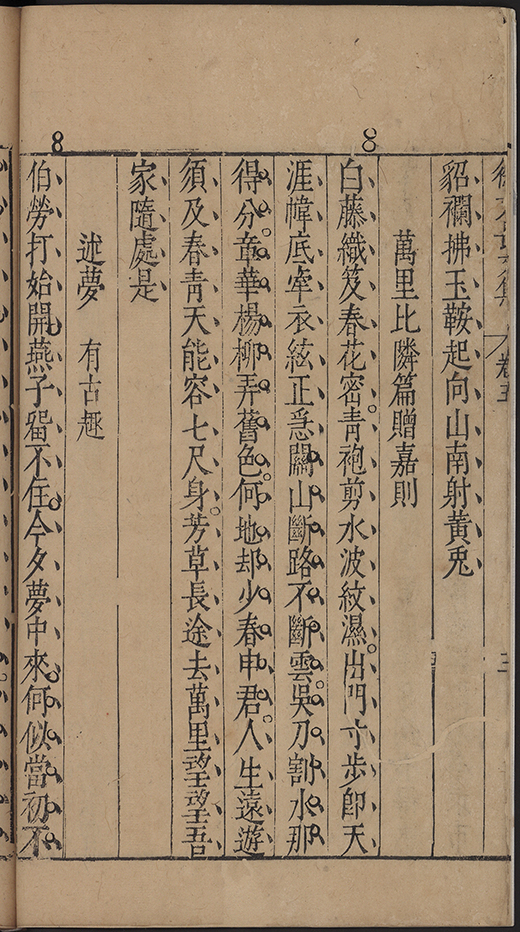 8
8
卷五
三
貂襴拂玉鞍起向山南射黃兎
萬里比隣篇贈嘉則
白藤織笈春花密青袍剪水波紋濕出門寸步即天
涯幃底牽衣絃正急關山斷路不斷雲吳刀割水那
得分章華楊柳弄舊色何地却少春申君人生遠遊
須及春青天能容七尺身芳草長途去萬里望望吾
家隨處是
述夢 有古趣
伯勞打始開燕子畱不住今夕夢中來何似當初不